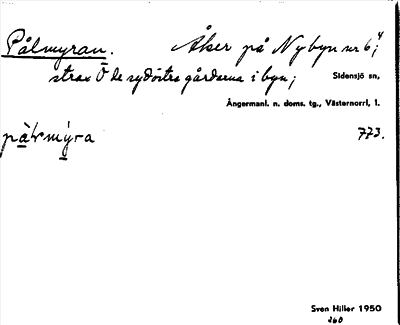 Pålmyran. Åker på Nybyn nr 6⁴;
strax Ö de sydöstra gårdarna i byn; Sidensjö sn,
Ångermanl. n. doms. tg., Västernorrl, l.
773.
Sven Hiller 1950
260